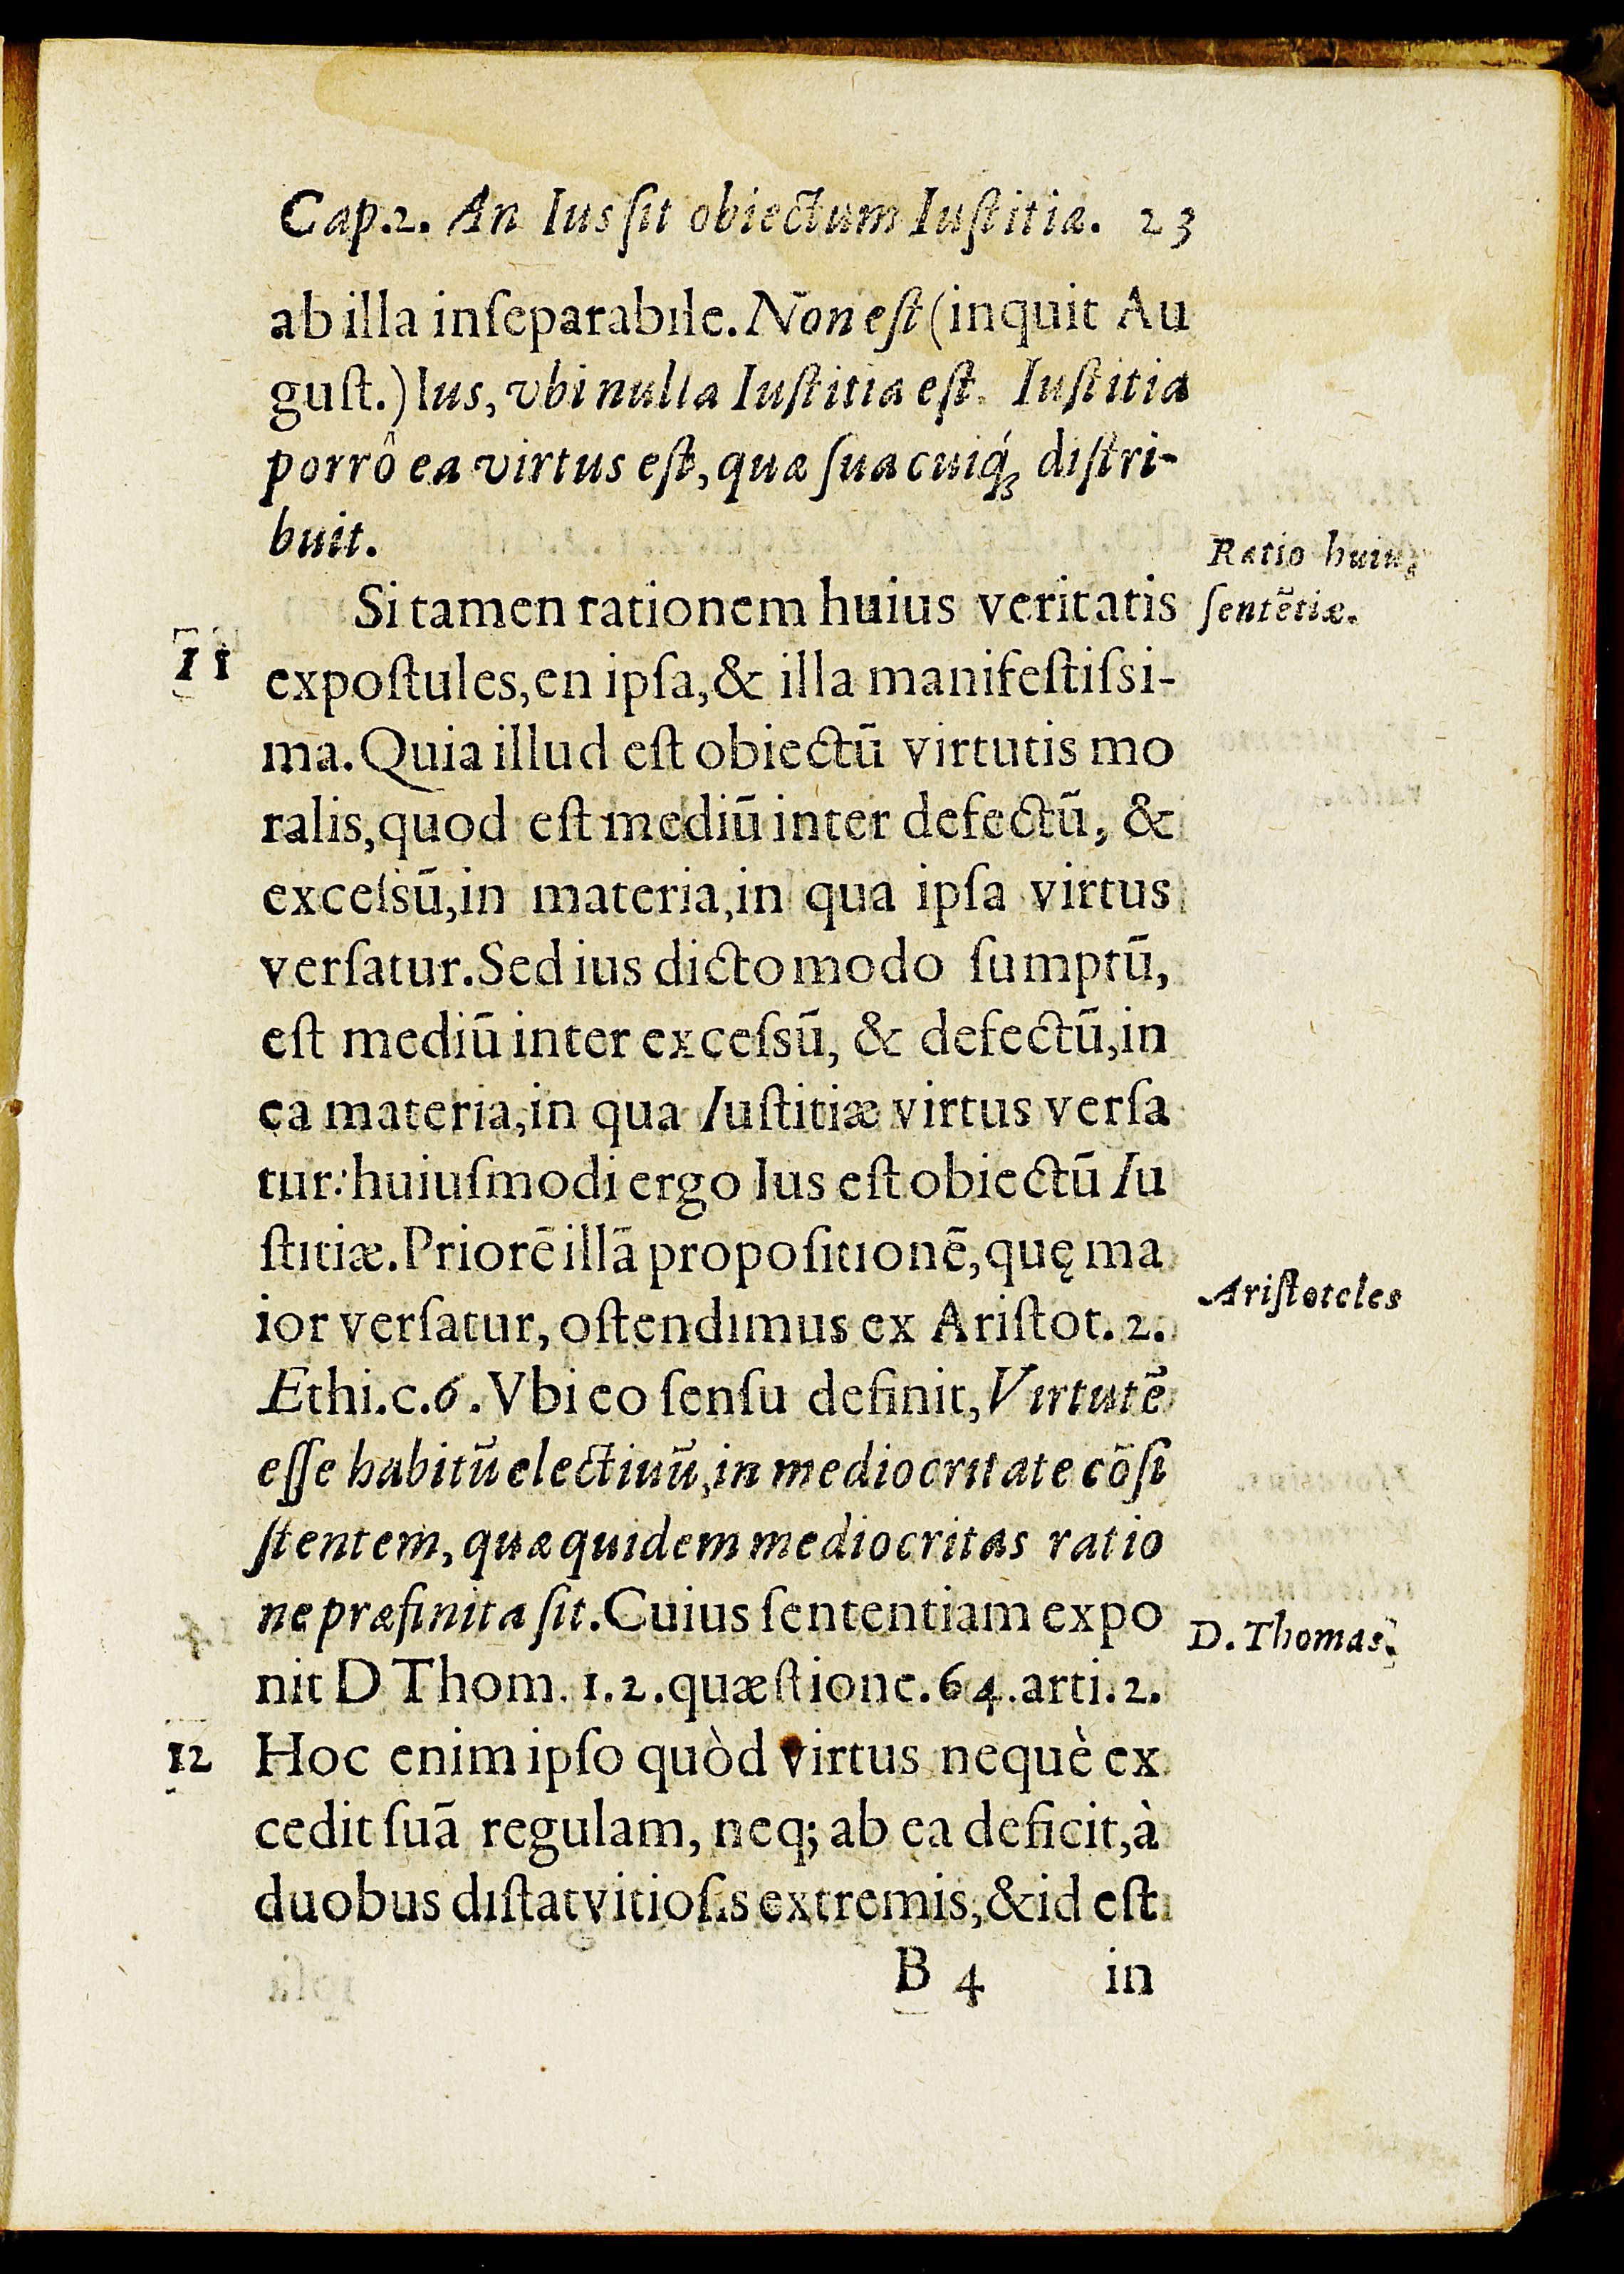 Cap.2. An Ius ſit obiectum Iuſtitiæ. 23
ab illa inſeparabile. Non eſt (inquit Au
guſt.) Ius, vbi nulla Iuſtitia eſt. Iuſtitia
porrô ea virtus eſt, quæ ſua cuiq́ꝫ diſtri-
buit.
Ratio huiuꝰ
ſentẽtiæ.
Si tamen rationem huius veritatis
11
expoſtules, en ipſa, & illa manifeſtiſsi-
ma. Quia illud eſt obiectū virtutis mo
ralis, quod eſt mediū inter defectū, &
exceſsū, in materia, in qua ipſa virtus
verſatur. Sed ius dicto modo ſumptū,
eſt mediū inter exceſsū, & defectū, in
ea materia, in qua Iuſtitiæ virtus verſa
tur: huiuſmodi ergo Ius eſt obiectū Iu
ſtitiæ. Priorē illā propoſitionē, quę ma
ior verſatur, oſtendimus ex Ariſtot. 2.
Ariſtoteles
Ethi. c. 6. Vbi eo ſenſu definit, Virtutē
eſſe habitū electiuū, in mediocritate cōſi
ſtentem, quæ quidem mediocritas ratio
ne præfinita ſit. Cuius ſententiam expo
D. Thomas.
nit D Thom. 1. 2. quæſtione. 64. arti. 2.
12 Hoc enim ipſo quòd virtus nequè ex
cedit ſuā regulam, neq; ab ea deficit, à
duobus diſtat vitioſis extremis, & id eſt
B 4 in